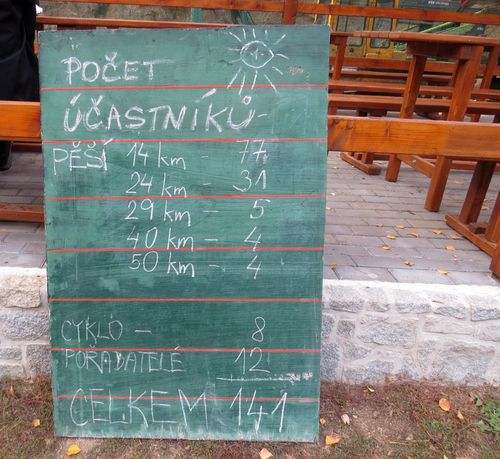 POČET
ÚČASTNÍKŮ
PĚŠÍ 14 km - 77
24 km - 31
29 km - 5
40 km - 4
50 km - 4
CYKLO - 8
POŘADATELÉ 12
CELKEM 141